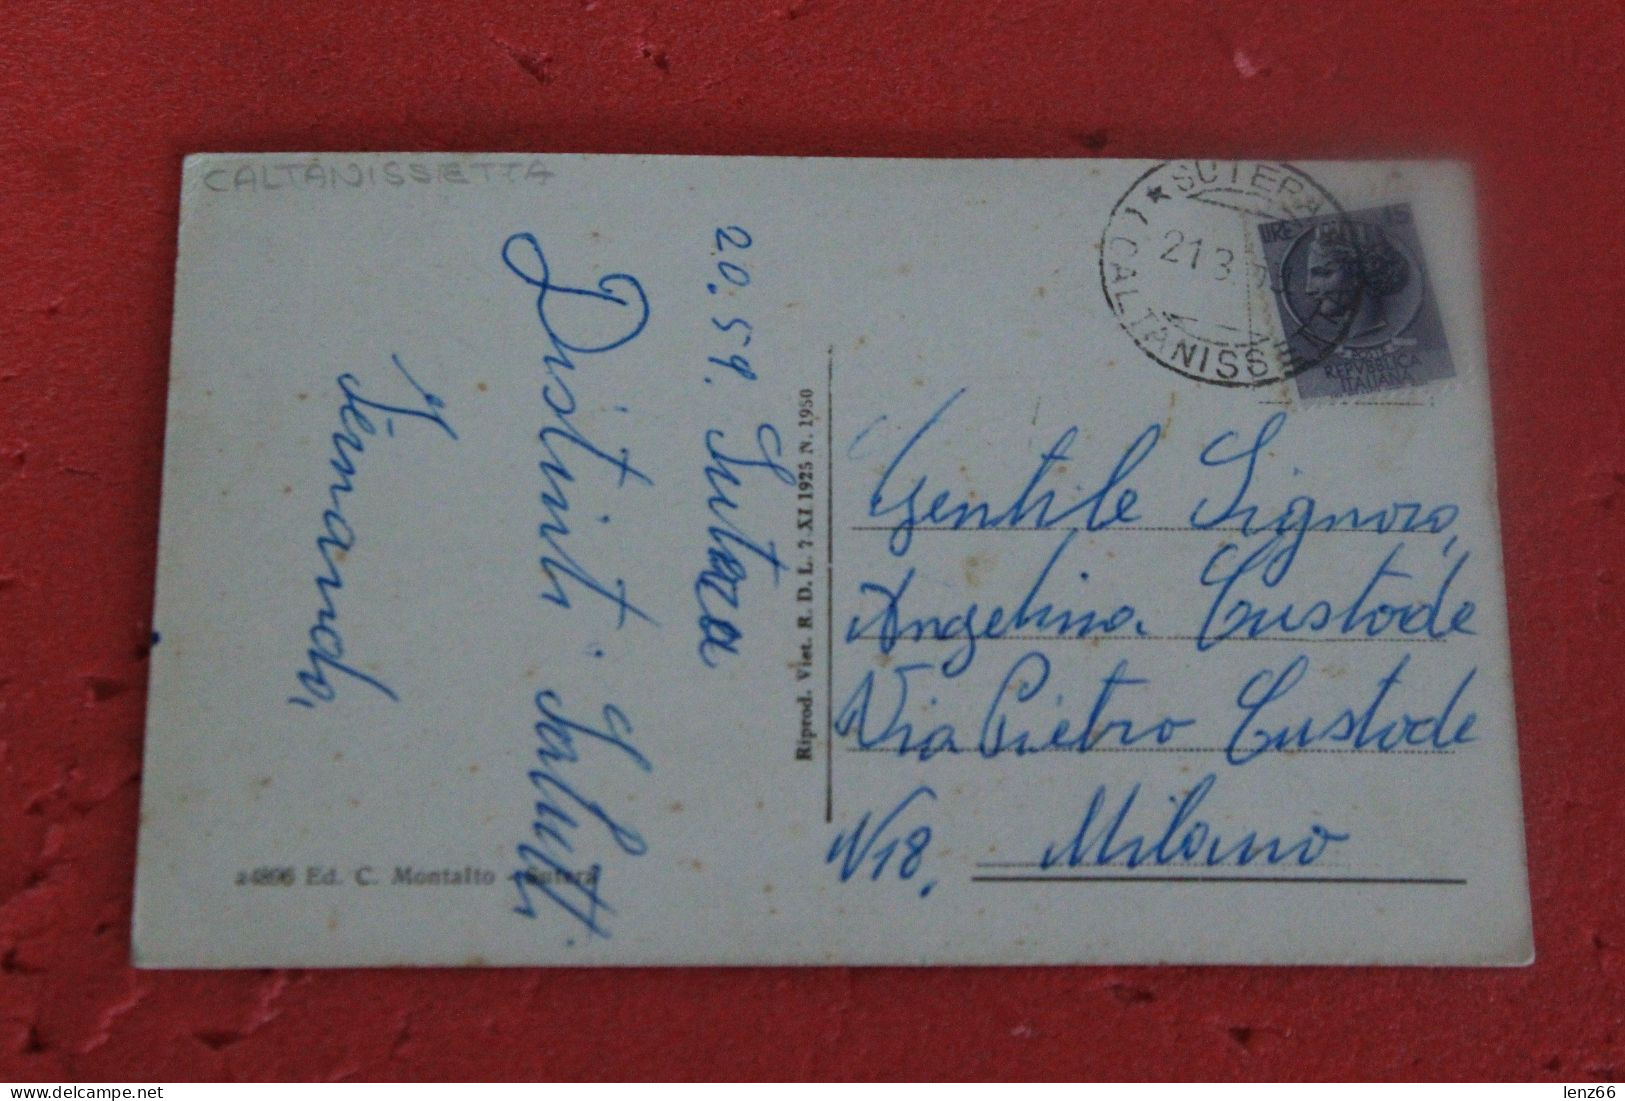 CALTANISSETTA
20.59. Sutera
Distinti Saluti
Fernando,
Riprod. Viet. R. D. L. 7 XI 1925 N. 1950
a4896 Ed. C. Montalto - Sutera
SUTERA
(CALTANISS
21 3
LIRE 15
POSTE
REPVBBLICA
ITALIANA
Gentile Signora,
Angelina Custode
Via Pietro Custode
N18. Milano
delcampe.net
lenz66